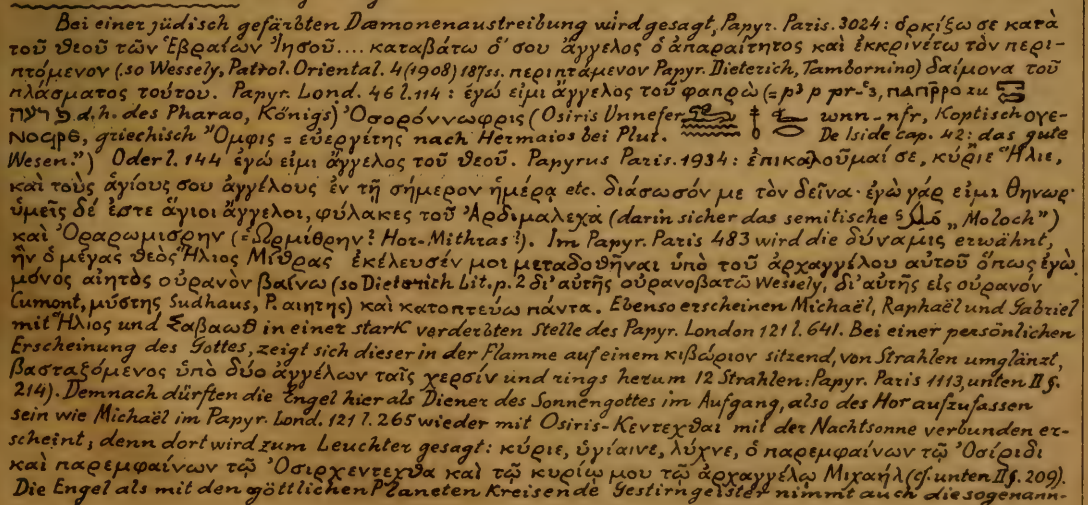 Bei einer jüdisch gefärbten Dæmonenaustreibung wird gesagt, Papyr. Paris. 3024: ὁρκίζω σε κατὰ
τοῦ θεοῦ τῶν Ἑβραίων Ἰησοῦ.... καταβάτω ὅ σου ἄγγελος ὁ ἀπαραίτητος καὶ ἐκκρινέτω τὸν περι-
πτόμενον (.so Wessely, Patrol. Oriental. 4 (1908) 187ss. περιπτάμενον Papyr. Dieterich, Tambornino) δαίμονα τοῦ
πλάσματος τούτου. Papyr. Lond. 46 l. 114: ἐγώ εἰμι ἄγγελος τοῦ φαπρω (= p³ p pr-ꜥ3, ⲡⲁⲡⲣ̄ⲣⲟ zu
d.h. des Pharao, Königs) Ὀσορόννωφρις (Osiris Unnefer wnn-nfr, Koptisch ⲟⲩⲉ-
ⲛⲟϥⲣⲉ, griechisch Ὄμφις = εὐεργέτης nach Hermaios bei Plut. De Iside cap. 42: das gute
Wesen.") Oder l. 144 ἐγώ εἰμι ἄγγελος τοῦ θεοῦ. Papyrus Paris. 1934: ἐπικαλοῦμαί σε, κύριε Ἥλιε,
καὶ τοὺς ἁγίους σου ἀγγέλους ἐν τῇ σήμερον ἡμέρᾳ etc. διάσωσόν με τὸν δεῖνα· ἐγὼ γάρ εἰμι θηνωρ·
ὑμεῖς δέ ἐστε ἅγιοι ἄγγελοι, φύλακες τοῦ Ἀρδιμαλεχα (darin sicher das semitische „Moloch")
καὶ Ὀραρωμισρην (= Ὡρμίθρην? Hor-Mithras?). Im Papyr. Paris 483 wird die δύναμις erwähnt,
ἣν ὁ μέγας θεὸς Ἥλιος Μίθρας ἐκέλευσέν μοι μεταδοθῆναι ὑπὸ τοῦ ἀρχαγγέλου αὐτοῦ ὅπως ἐγὼ
μόνος αἰητὸς οὐρανὸν βαίνω (so Dieterich Lit. p. 2 δι' αὐτῆς οὐρανοβατῶ Wessely, δι' αὐτῆς εἰς οὐρανόν
Cumont, μύστης Sudhaus, P. αιητης) καὶ κατοπτεύω πάντα. Ebenso erscheinen Michaël, Raphaël und Gabriel
mit Ἥλιος und Σαβαωθ in einer stark verderbten Stelle des Papyr. London 121 l. 641. Bei einer persönlichen
Erscheinung des Gottes, zeigt sich dieser in der Flamme auf einem κιβώριον sitzend, von Strahlen umglänzt,
βασταζόμενος ὑπὸ δύο ἀγγέλων ταῖς χερσίν und rings herum 12 Strahlen: Papyr. Paris 1113, unten II §.
214). Demnach dürften die Engel hier als Diener des Sonnengottes im Aufgang, also des Hor aufzufassen
sein wie Michaël im Papyr. Lond. 121 l. 265 wieder mit Osiris-Κεντεχθαι mit der Nachtsonne verbunden er-
scheint; denn dort wird zum Leuchter gesagt: κύριε, ὑγίαινε, λύχνε, ὁ παρεμφαίνων τῷ Ὀσίριδι
καὶ παρεμφαίνων τῷ Ὀσιρχεντεχθα καὶ τῷ κυρίῳ μου τῷ ἀρχαγγέλῳ Μιχαήλ (cf. unten II §. 209).
Die Engel als mit den göttlichen Planeten kreisende Gestirngeister nimmt auch die sogenann-